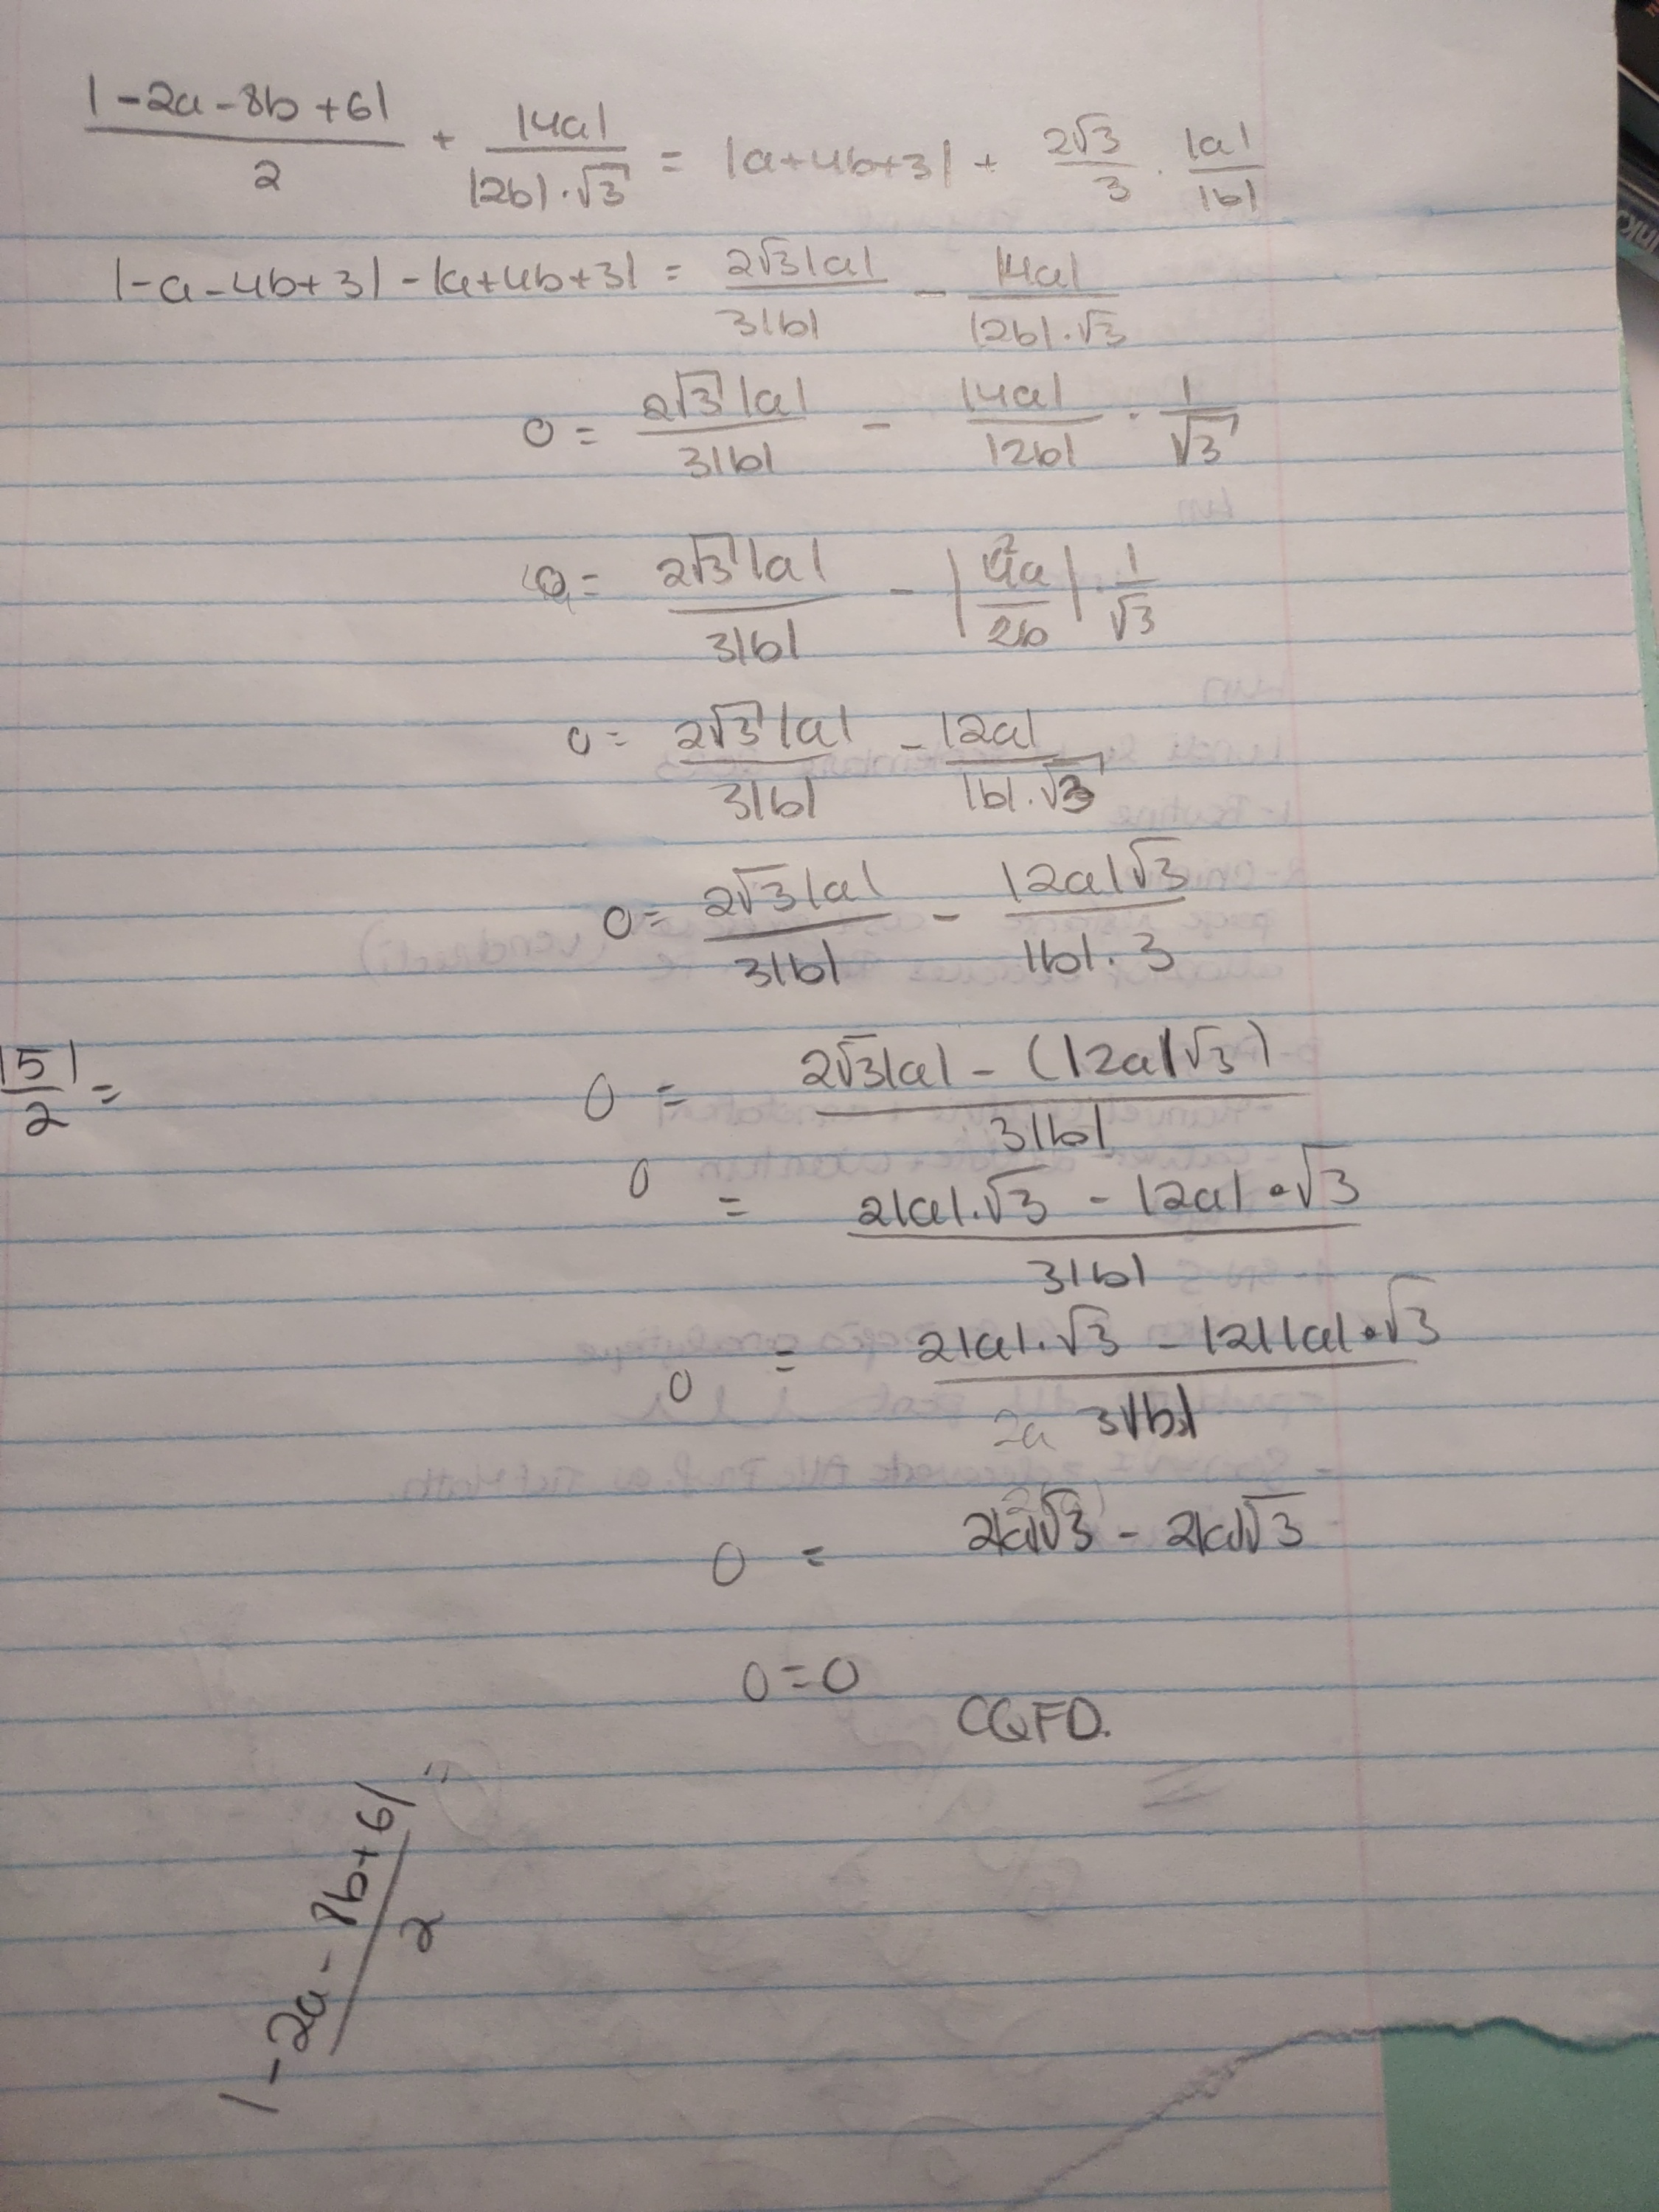 |-2a-8b+6|/2 + |4a|/(|2b|·√3) = |a+4b+3| + 2√3/3 · |a|/|b|
|-a-4b+3| - |a+4b+3| = 2√3|a|/3|b| - |4a|/(|2b|·√3)
0 = 2√3|a|/3|b| - |4a|/|2b| · 1/√3
0 = 2√3|a|/3|b| - |4a/2b| · 1/√3
0 = 2√3|a|/3|b| - |2a|/(|b|·√3)
0 = 2√3|a|/3|b| - |2a|√3/(|b|·3)
|5|/2 =
0 = (2√3|a| - (|2a|√3))/3|b|
0 = (2|a|·√3 - |2a|·√3)/3|b|
0 = (2|a|·√3 - |2||a|·√3)/3|b|
2a
0 = 2|a|√3 - 2|a|√3
0=0
CQFD.
|-2a-8b+6|/2 =